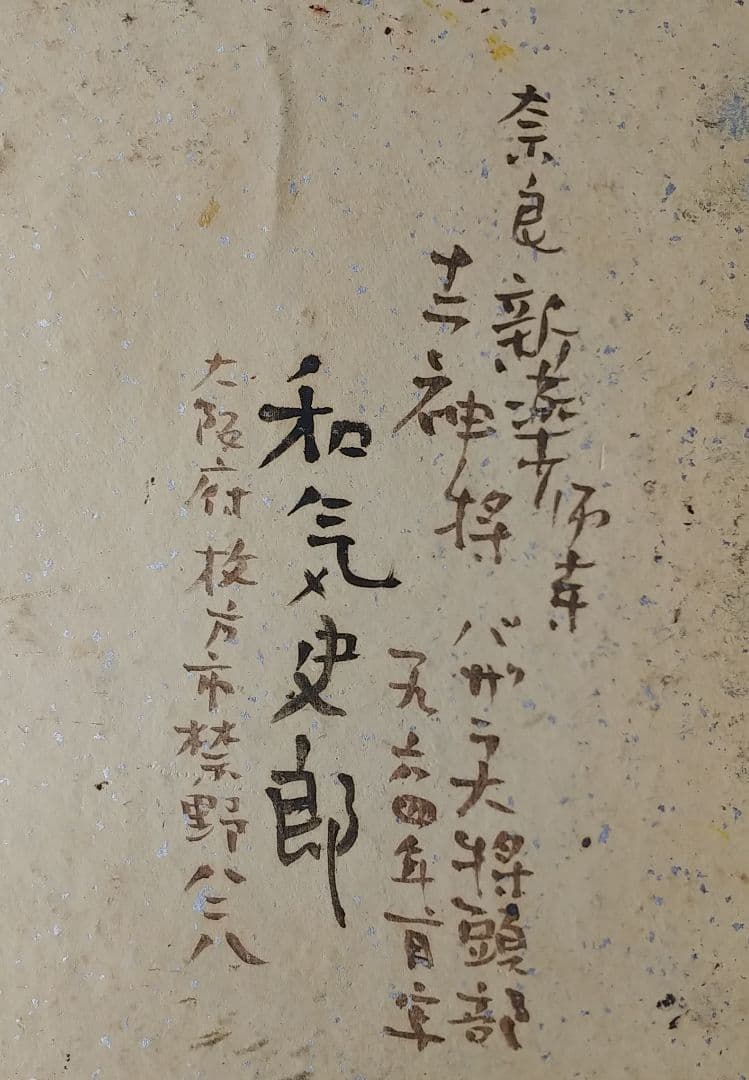 奈良新薬師寺
十二神将
バザラ大将頭部
一九六四年盲写
和気史郎
大阪府枚方市禁野八二八